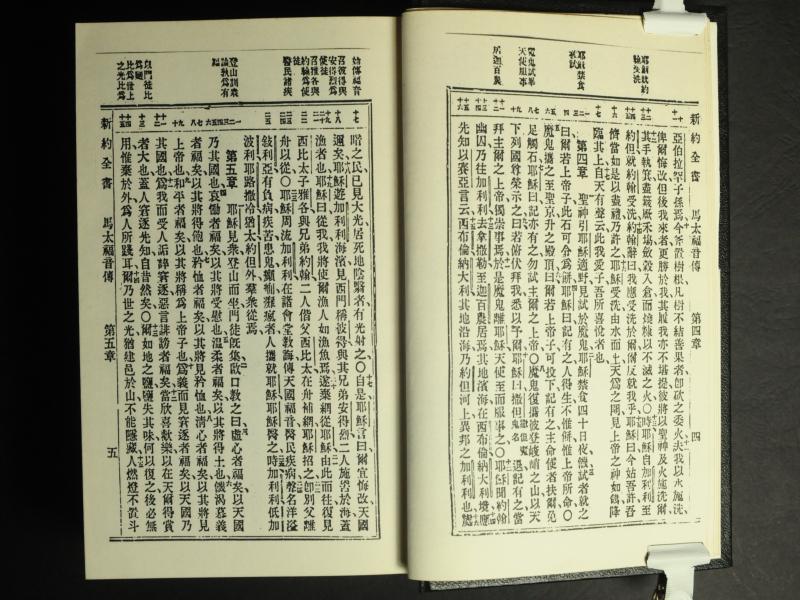 新約全書 馬太福音傳 第四章 四
耶穌禁食
亞伯拉罕子孫焉今斧置樹根凡樹不結善果者卽砍之委火夫我以水施洗
俾爾悔改但後我來者更勝於我其履我亦不堪提彼將以聖神及火施洗爾
其手執箕盡簸厥禾場斂穀入倉而燒糠以不滅之火〇時耶穌自加利利至
約但就約翰受洗約翰辭曰我應受洗於爾爾反就我乎耶穌曰今姑吾許吾
儕當如是以盡禮乃許之耶穌受洗由水而上天爲之開見上帝之神如鴿降
臨其上自天有聲云此我愛子吾所喜悅者也
第四章 聖神引耶穌適野見試於魔鬼耶穌禁食四十日夜饑試者就之
曰爾若上帝子此石可令爲餅耶穌曰記有之人得生不惟餅惟上帝所命〇
魔鬼攜之至聖京升之殿頂曰爾若上帝子可投下記有之主命使者扶爾免
足觸石耶穌曰記亦有之勿試主爾之上帝〇魔鬼復攜彼登峻峭之山以天
下列國尊榮示之曰若俯伏拜我悉以予爾耶穌曰撒但退記有之當
拜主爾之上帝獨崇事焉於是魔鬼離耶穌天使至而服事之〇耶穌聞約翰
幽囚乃往加利利去拿撒勒至迦百農居焉其地濱海在西布倫納大利境應
先知以賽亞言云西布倫納大利其地沿海乃約但河上異邦之加利利也處
新約全書 馬太福音傳 第五章 五
登山訓衆
暗之民已見大光居死地陰翳者有光射之〇自是耶穌言曰爾宜悔改天國
邇矣耶穌遊加利利海濱見西門稱彼得與其兄弟安得烈二人施罟於海蓋
漁者也耶穌曰從我我將使爾漁人如漁魚焉遂棄網從耶穌由此而往復見
西比太子雅各與兄弟約翰二人偕父西比太在舟補網耶穌招之卽別父離
舟以從〇耶穌周流加利利在諸會堂敎誨傳天國福音醫民疾病聲名洋溢
敍利亞有負病疾苦患鬼癲癎癱瘋者人攜就耶穌耶穌醫之時加利利低加
波利耶路撒冷猶太約但外羣衆從焉
第五章 耶穌見衆登山而坐門徒旣集啟口敎之曰虛心者福矣以天國
乃其國也哀慟者福矣以其將受慰也溫柔者福矣以其將得土也饑渴慕義
者福矣以其將得飽也矜恤者福矣以其將見矜恤也淸心者福矣以其將見
上帝也和平者福矣以其將稱爲上帝子也爲義而見窘逐者福矣以天國乃
其國也爲我而受人詬誶窘逐惡言誹謗者福矣當欣喜歡樂以在天爾得賞
者大也蓋人窘逐先知自昔然矣〇爾如地之鹽鹽失其味何以復之後必無
用惟棄於外爲人所踐耳爾乃世之光猶建邑於山不能隱藏人燃燈不置斗